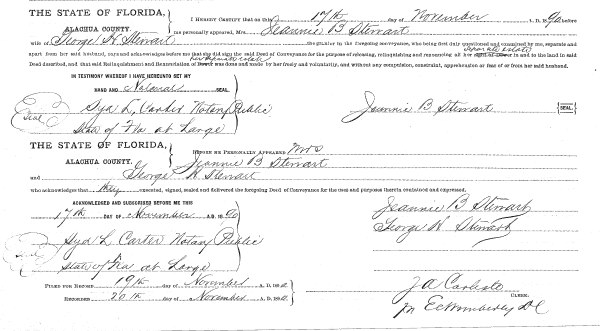 THE STATE OF FLORIDA,
ALACHUA COUNTY.
I HEREBY CERTIFY that on this 17th day of November A. D. 1890 before
me personally appeared, Mrs. Jeannie B Stewart
wife of George H Stewart the grantor in the foregoing conveyance, who being first duly questioned and examined by me, separate and
apart from her said husband, did acknowledge before me that she did sign the said Deed of Conveyance for the purpose of releasing, relinquishing and renouncing all her separate estate in and to the land in said
Deed described, and that said Relinquishment and Renunciation of her separate estate was done and made by her freely and voluntarily, and without any compulsion, constraint, apprehension or fear of or from her said husband.
IN TESTIMONY WHEREOF I HAVE HEREUNTO SET MY
HAND AND Notarial SEAL
Seal
Syd L. Carter Notary Public
State of Fla at Large
Jeannie B Stewart (SEAL)
THE STATE OF FLORIDA,
ALACHUA COUNTY.
BEFORE ME PERSONALLY APPEARED Mrs
Jeannie B Stewart
and George H Stewart
who acknowledges that they executed, signed, sealed and delivered the foregoing Deed of Conveyance for the uses and purposes therein contained and expressed.
ACKNOWLEDGED AND SUBSCRIBED BEFORE ME THIS
17th DAY OF November A. D. 1890
Seal
Syd L Carter Notary Public
State of Fla at Large
Jeannie B Stewart
George H Stewart
FILED FOR RECORD 19th day of November A. D. 1890
RECORDED 20th day of November A. D. 1890
J A Carlisle
CLERK.
pr E C Wimberley D C